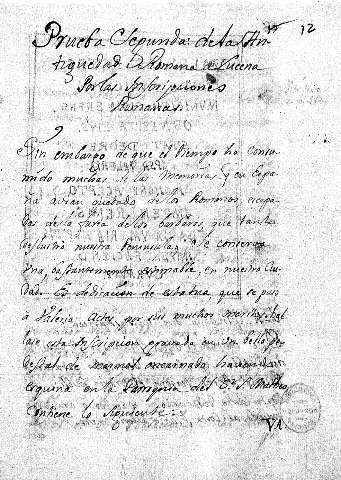 12
Prueba Segunda de la An-
tiguedad Romana de Lucena
Por las Inscripciones
Romanas.
Sin embargo de que el tiempo ha consu-
mido muchas de las Memorias, q en Espa
ña avian quedado de los Romanos escapa
das de la furia de los barbaros, que tanto
deslustró nuestra peninsula; Se conserva
Una, bastantemente estimable, en nuestra Ciu
dad. Es dedicacion de estatua, que se puso
à Valeria por sus muchos meritos; hal
lase esta Inscripcion gravada en un bello pe
destal de marmol encarnado, haviendo
esquina en la Parroquia del S. Matheo
Contiene lo siguiente:
VA